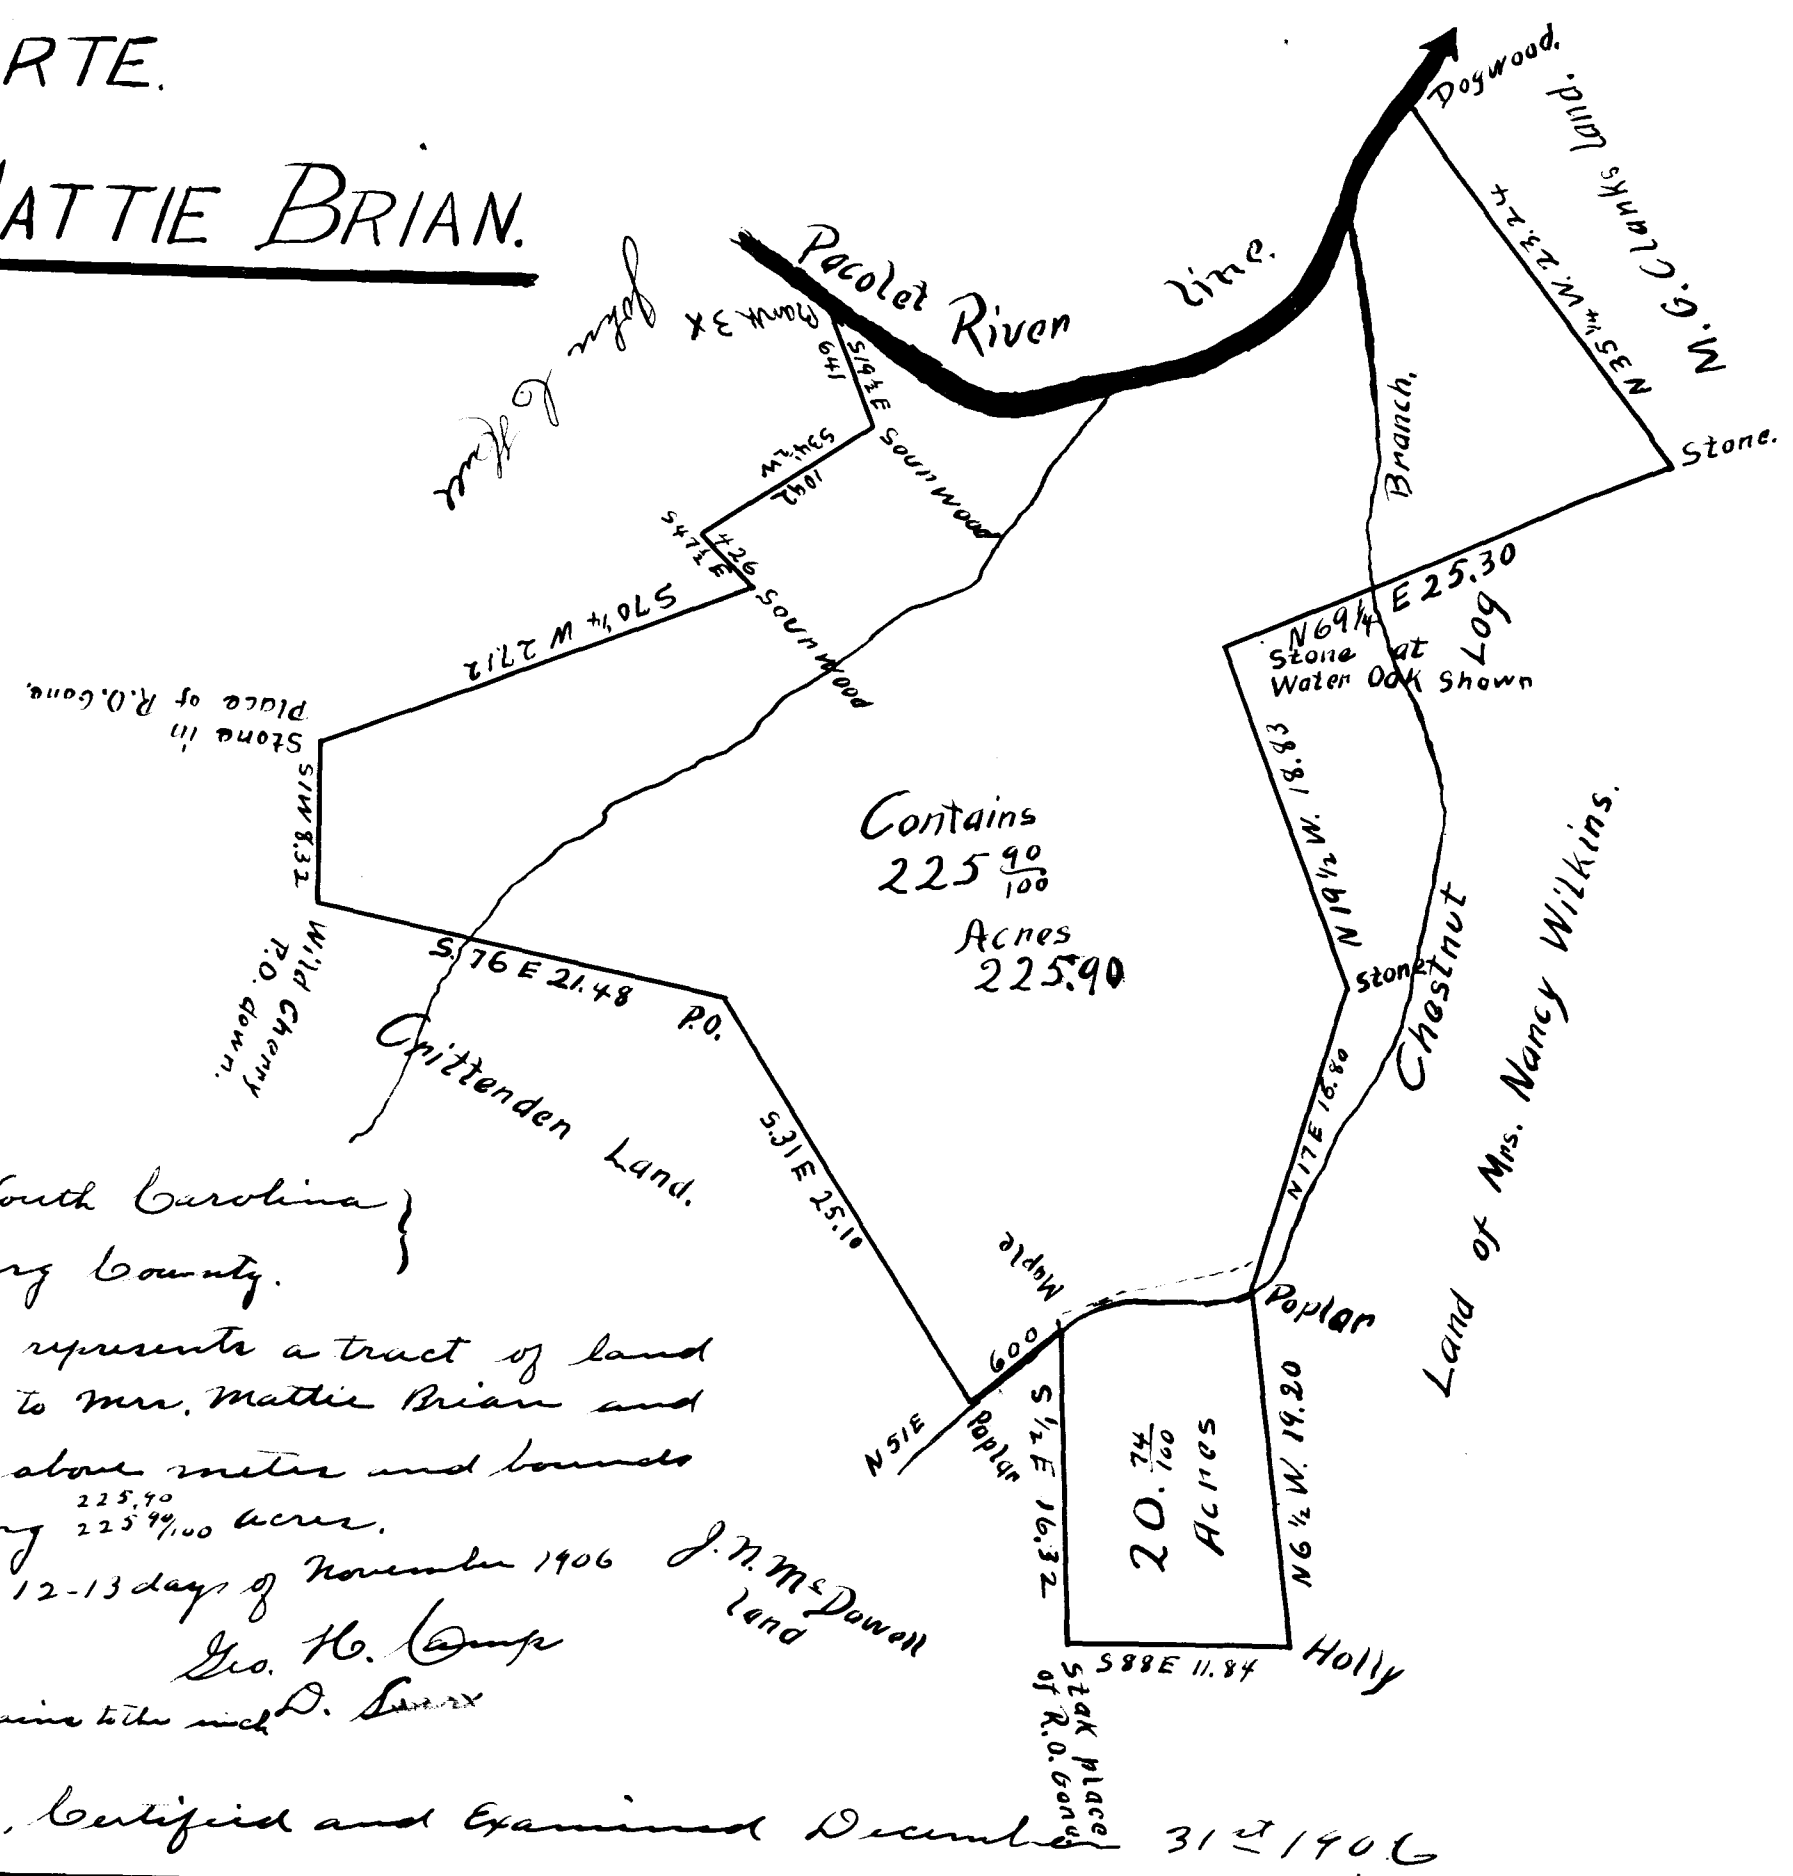 RTE.
ATTIE BRIAN.
Pacolet River Line.
Dogwood.
M. G. Clanks Land.
N 35 1/4 W. 23.24
Stone.
Bank 3X
John C
S19 1/2 E
649
Sounwood
S34 1/2 W
1042
S47 1/2 E
426
Sounwood
S70 1/4 W 27.12
Stone in
Place of R.O. Gone.
S1W 8.32
Wild Cherry
P.O. down.
S. 76 E 21.48
P.O.
Crittenden Land.
S.31 E 25.10
Branch.
N 69 1/4 E 25.30
Stone at
Water Oak Shown
Log
N 19 1/2 W. 18.83
Stone
Chestnut
N 17 E 16.80
Land of Mrs. Nancy Wilkins.
Contains
225 90/100
Acres
225.90
Maple
600
N 51 E
Poplar
Poplar
S 1/2 E 16.32
20. 74/100
Acres
N 6 1/2 W. 19.20
S 88 E 11.84
Holly
Stak place
of R.O. Gone.
J. N. McDowell
land
outh Carolina }
rg County.
represents a tract of land
to Mrs. Mattie Brian and
above metes and bounds
225.90
ng 225 90/100 acres.
12-13 days of November 1906
Geo. H. Camp
D.
ains to the inch
, Certified and Examined December 31st 1906